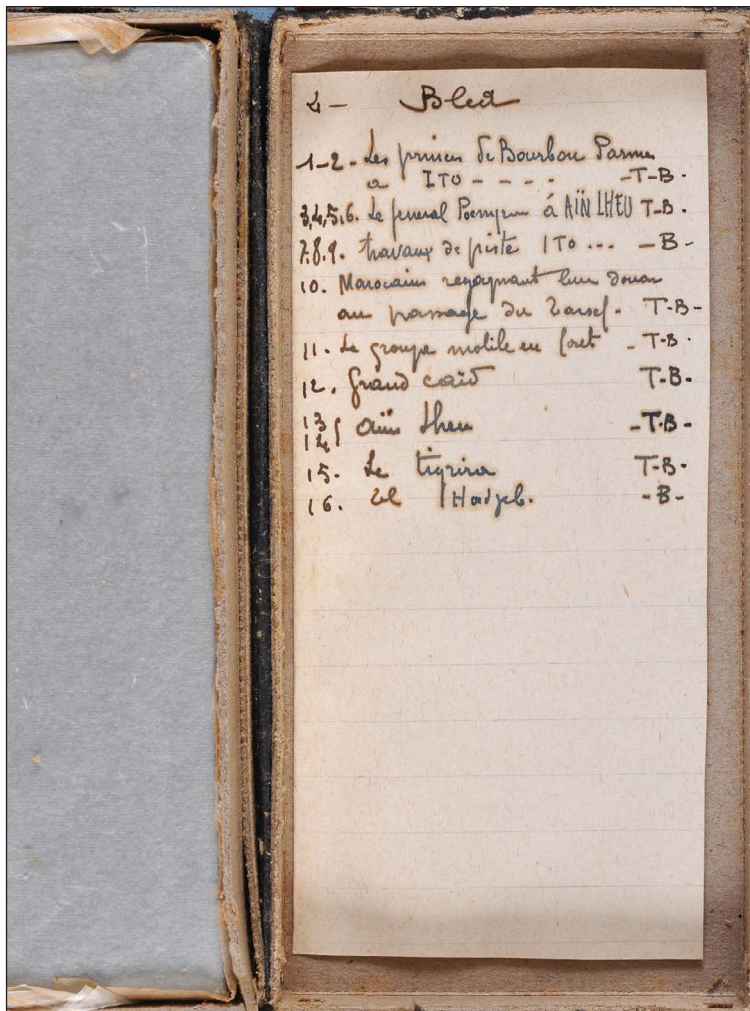 2 - Bled
1-2 - Les princes de Bourbon Parme
a ITO - - - - -T-B -
3,4,5,6. Le general Poeymirau à AÏN LHEU T-B.
7.8.9. travaux de piste ITO ... - B -
10. Marocains regagnant leur douar
au passage du T-B-
11. Le groupe mobile en foret - T-B.
12. Grand caïd T-B-
13 } aïn lheu -T-B-
14
15. Le tigrira T-B-
16. El Hadjeb. - B -